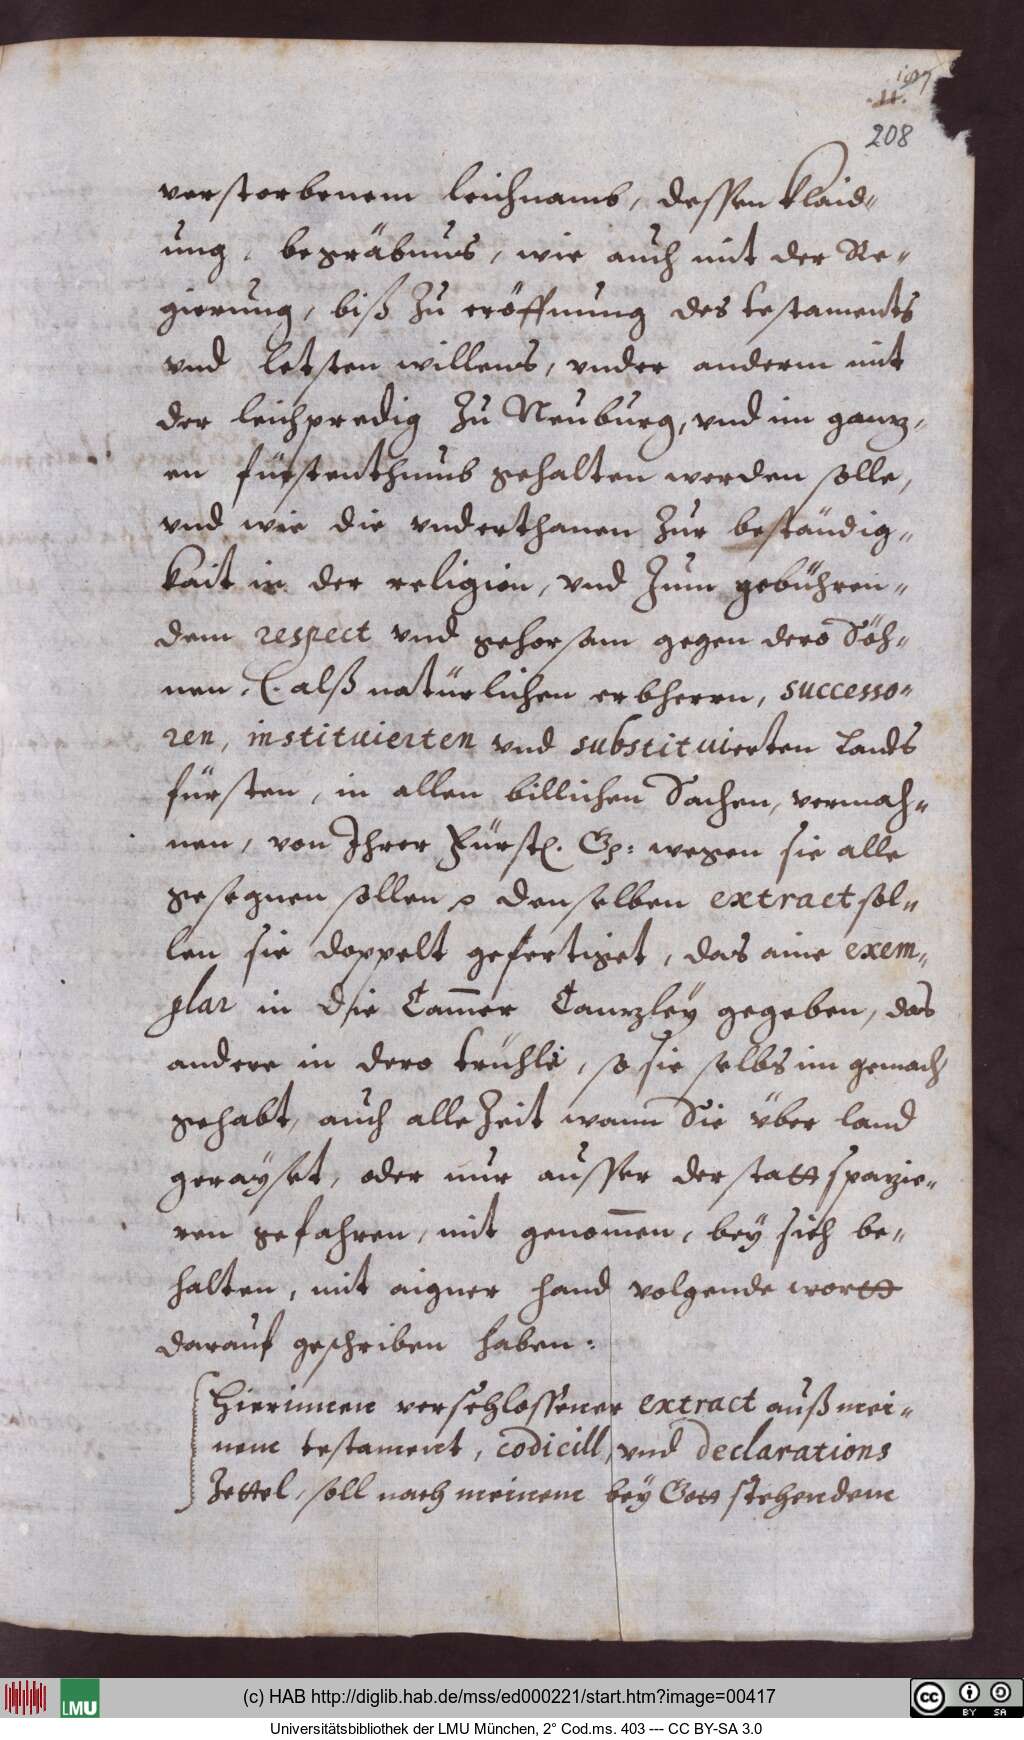 197
.11.
208
verstorbenem leichnamb, dessen klaid„
ung, begräbnus, wie auch mit der Re„
gierung, biß zu eröffnung des testaments
vnd letsten willens, vnder anderm mit
der leichpredig zu Neuburg, vnd im ganz„
en fürstenthumb gehalten werden solle,
vnd wie die vnderthanen zur beständig„
kait in der religion, vnd zum gebühren„
dem respect vnd gehorsam gegen dero Söh„
nen, (. alß natürlichen erbherrn, successo„
ren, instituierten vnd substituierten Lands
fürsten, in allen billichen Sachen, vermah„
nen, von Ihrer Fürstl. Gn: wegen sie alle
gesegnen sollen denselben extract sol„
len sie doppelt gefertiget, das aine exem„
plar in die Cam̄er Canzleÿ gegeben, das
andere in dero trühle, so sie selbs im gemach
gehabt, auch alle Zeit wann Sie über land
gerayset, oder nur ausser der statt spazie„
ren gefahren, mit genom̄en, beÿ sich be„
halten, mit aigner hand volgende wortt
darauf geschriben haben:
Hierinnen verschlossener extract auß mei„
nem testament, codicill, vnd declarations
Zettel, soll nach meinem beÿ Gott stehendem
LMU
(c) HAB http://diglib.hab.de/mss/ed000221/start.htm?image=00417
cc BY SA
Universitätsbibliothek der LMU München, 2° Cod.ms. 403 --- CC BY-SA 3.0